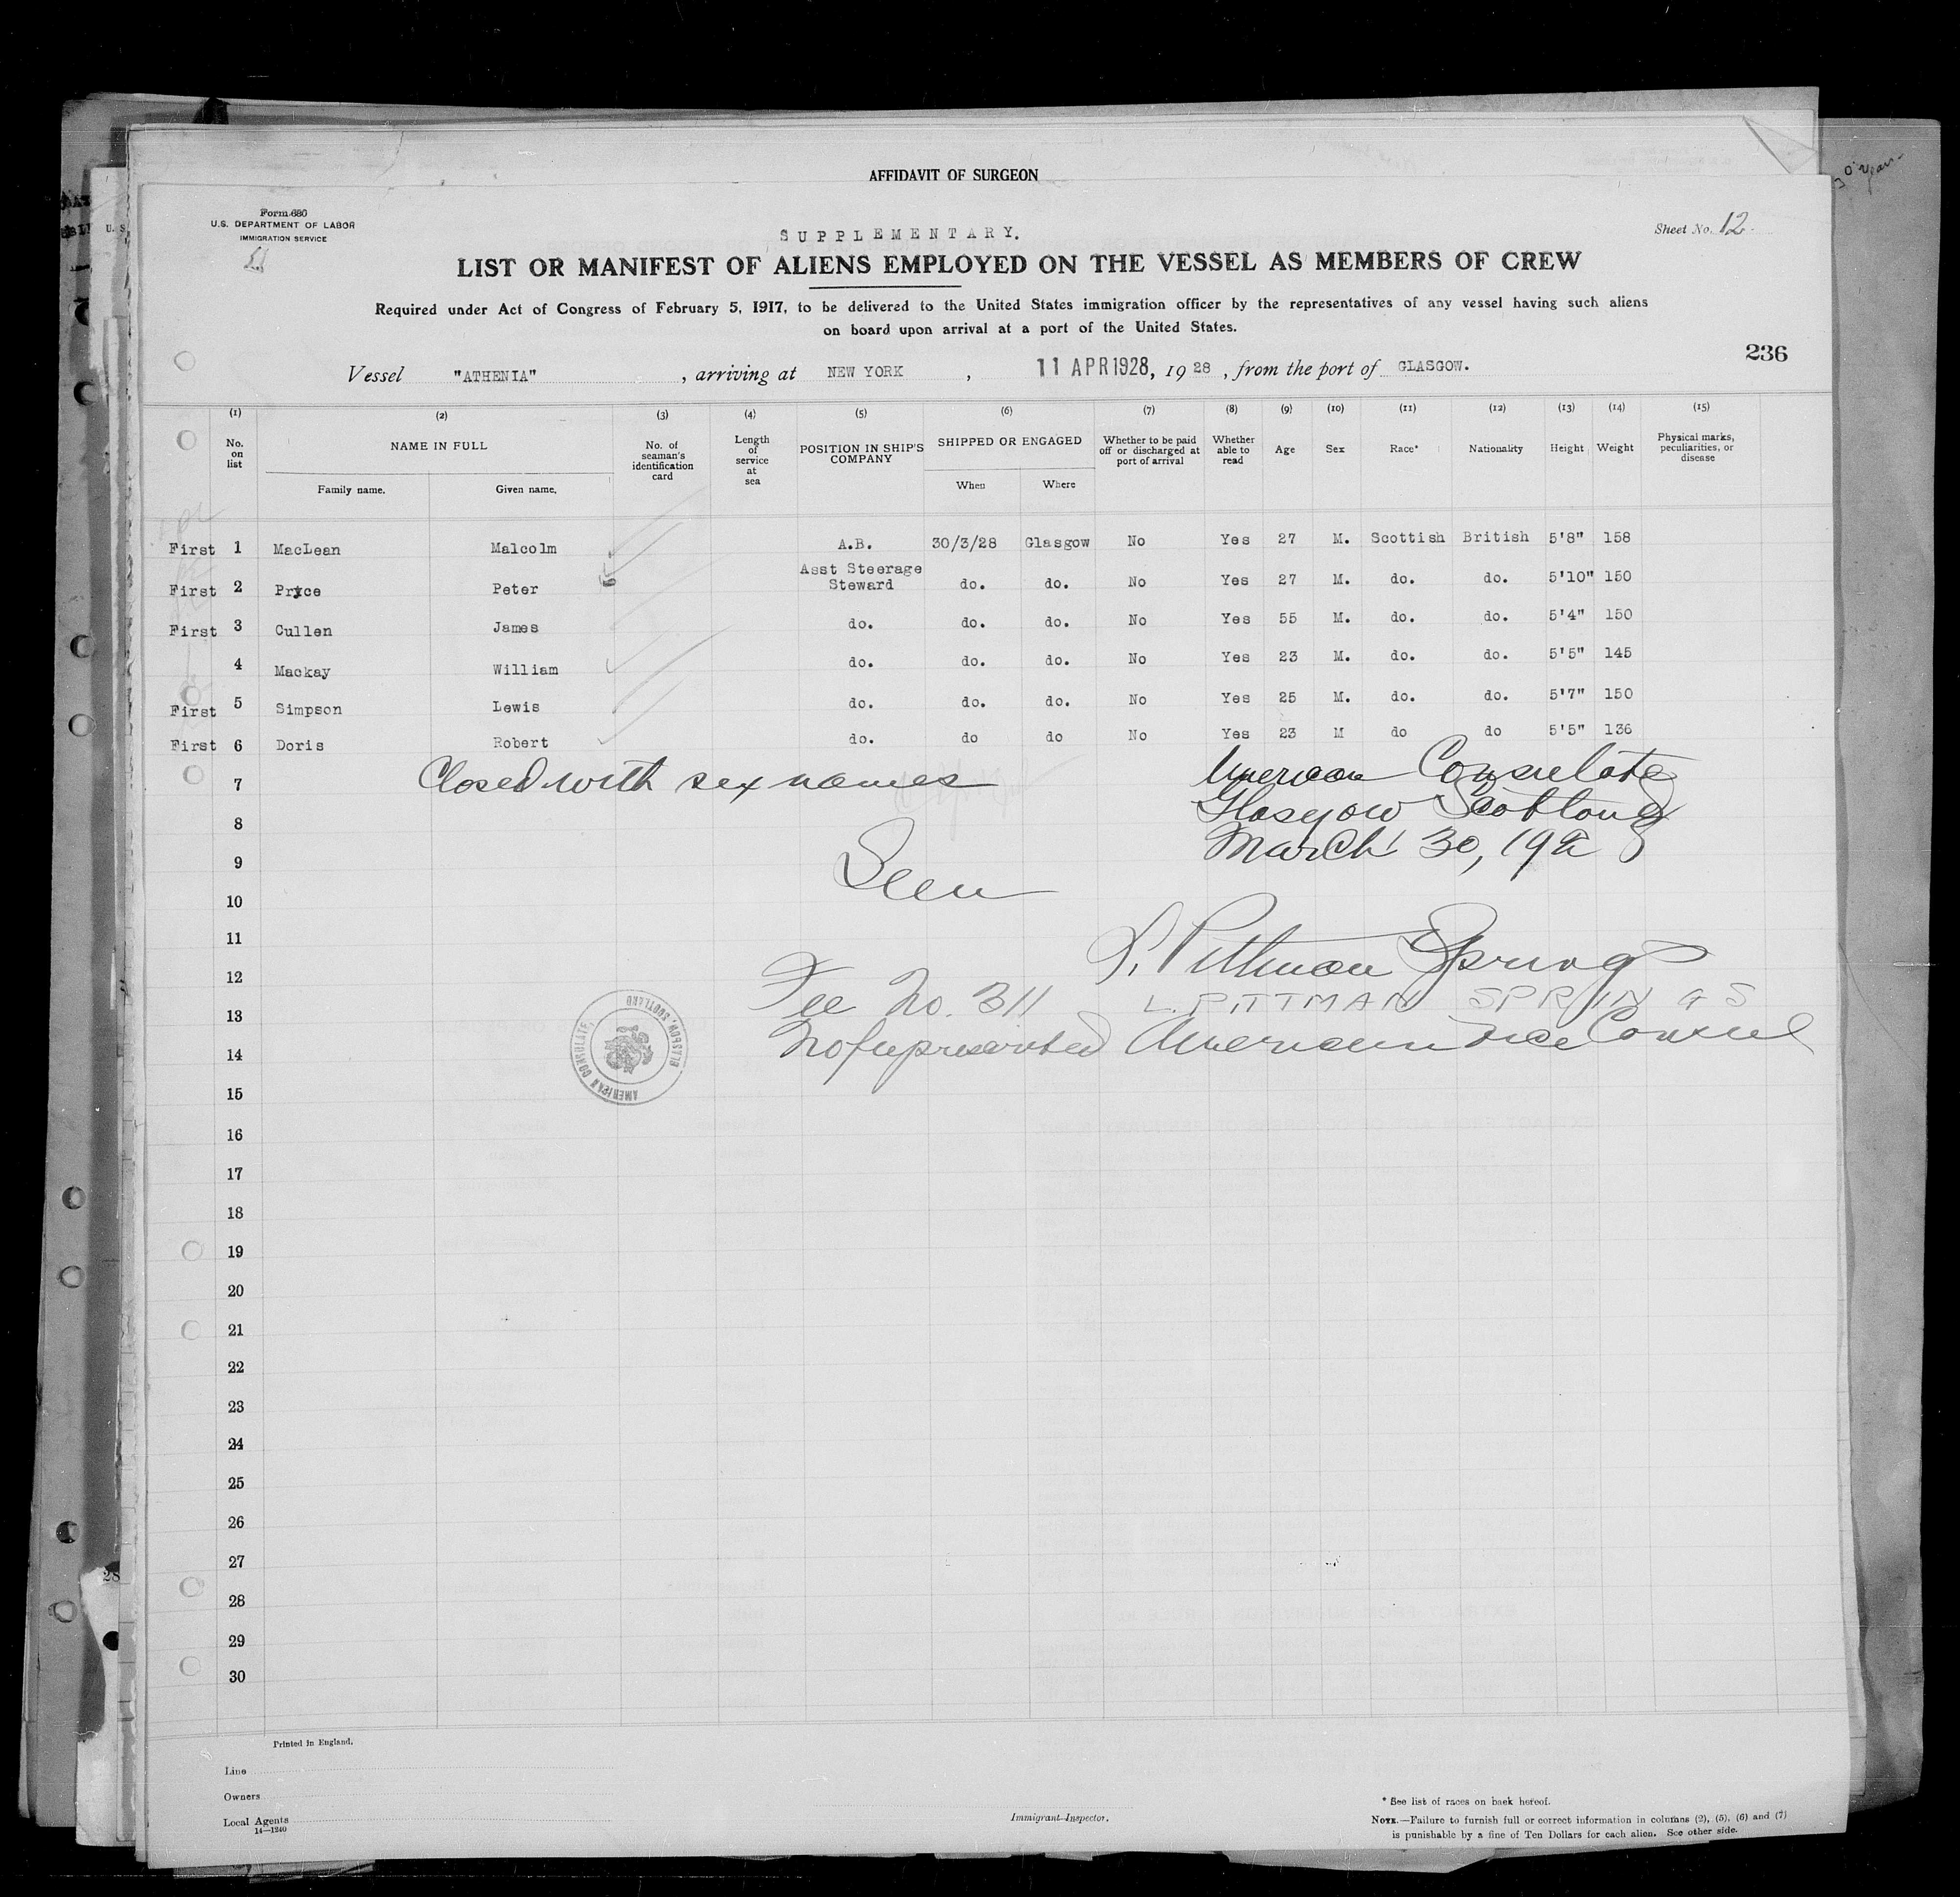 AFFIDAVIT OF SURGEON
Form 680
U.S. DEPARTMENT OF LABOR
IMMIGRATION SERVICE
Sheet No. 12.
SUPPLEMENTARY.
LIST OR MANIFEST OF ALIENS EMPLOYED ON THE VESSEL AS MEMBERS OF CREW
Required under Act of Congress of February 5, 1917, to be delivered to the United States immigration officer by the representatives of any vessel having such aliens
on board upon arrival at a port of the United States.
236
Vessel "ATHENIA", arriving at NEW YORK, 11 APR 1928, 1928, from the port of GLASGOW.
(1) (2) (3) (4) (5) (6) (7) (8) (9) (10) (11) (12) (13) (14) (15)
No. on list NAME IN FULL Family name. Given name. No. of seaman's identification card Length of service at sea POSITION IN SHIP'S COMPANY SHIPPED OR ENGAGED When Where Whether to be paid off or discharged at port of arrival Whether able to read Age Sex Race* Nationality Height Weight Physical marks, peculiarities, or disease
First 1 MacLean Malcolm A.B. 30/3/28 Glasgow No Yes 27 M. Scottish British 5'8" 158
First 2 Pryce Peter Asst Steerage Steward do. do. No Yes 27 M. do. do. 5'10" 150
First 3 Cullen James do. do. do. No Yes 55 M. do. do. 5'4" 150
4 Mackay William do. do. do. No Yes 23 M. do. do. 5'5" 145
First 5 Simpson Lewis do. do. do. No Yes 25 M. do. do. 5'7" 150
First 6 Doris Robert do. do do No Yes 23 M do do 5'5" 136
7 Closed with six names American Consulate
8 Glasgow Scotland
9 March 30, 1928
Seen
10
11
L. Pittman Springs
12
Fee No. 311 L. PITTMAN SPRINGS
13
No fee prescribed American Vice Consul
14
AMERICAN CONSULATE, GLASGOW, SCOTLAND
15
16
17
18
19
20
21
22
23
24
25
26
27
28
29
30
Printed in England.
Line
Owners
Local Agents
14—1240
Immigrant Inspector.
* See list of races on back hereof.
NOTE.—Failure to furnish full or correct information in columns (2), (5), (6) and (7)
is punishable by a fine of Ten Dollars for each alien. See other side.